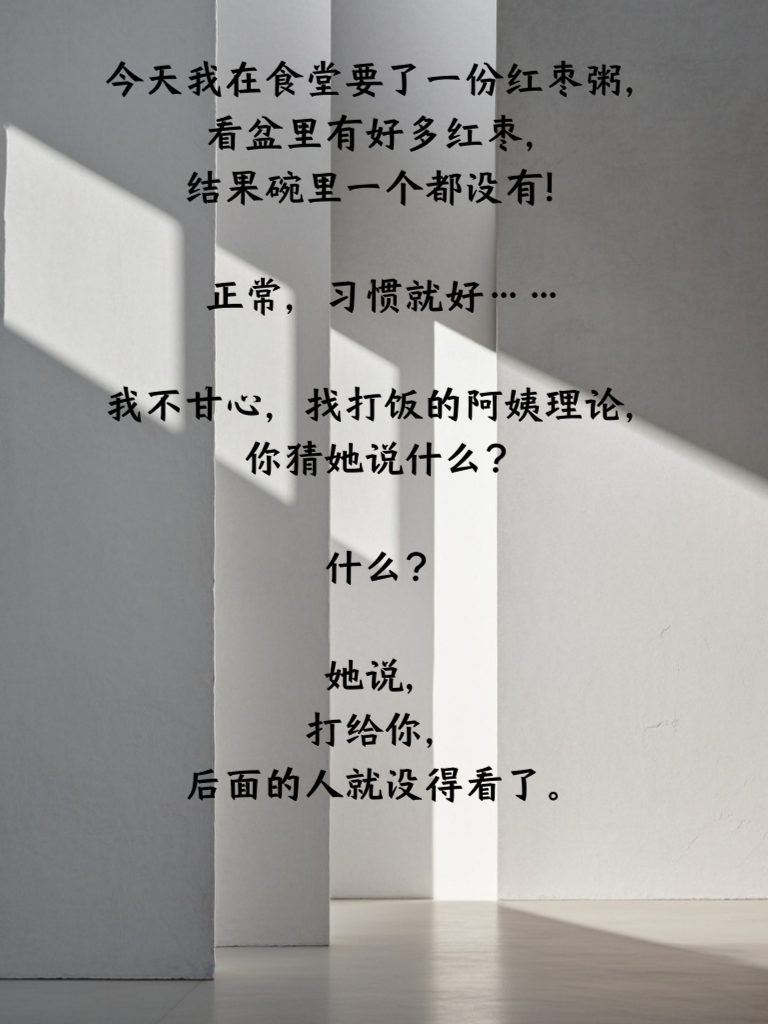 今天我在食堂要了一份红枣粥,
看盆里有好多红枣,
结果碗里一个都没有!
正常, 习惯就好……
我不甘心, 找打饭的阿姨理论,
你猜她说什么?
什么?
她说,
打给你,
后面的人就没得看了。